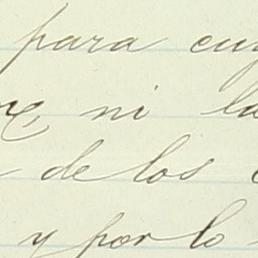 para
ni la
de los
y por lo